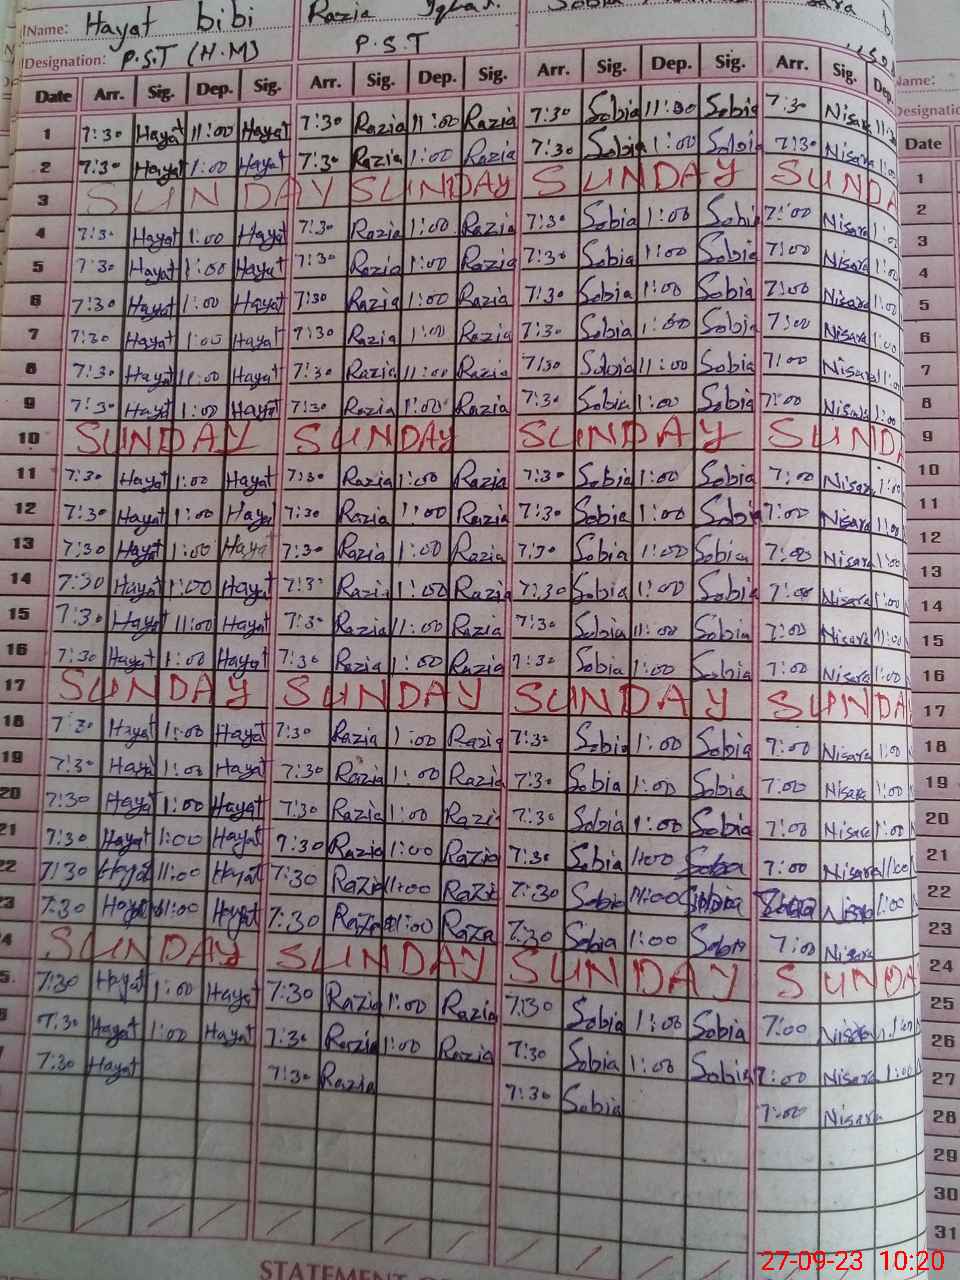 Name: Hayat bibi Razia Iqbal
Designation: P.S.T (H.M) P.S.T
Date Arr. Sig. Dep. Sig. Arr. Sig. Dep. Sig. Arr. Sig. Dep. Sig. Arr. Sig. Dep.
1 7:30 Hayat 11:00 Hayat 7:30 Razia 11:00 Razia 7:30 Sobia 11:00 Sobia 7:30 Nisara
2 7:30 Hayat 1:00 Hayat 7:30 Razia 1:00 Razia 7:30 Sobia 1:00 Sobia 7:30 Nisara
3 SUNDAY SUNDAY SUNDAY SUNDA
4 7:30 Hayat 1:00 Hayat 7:30 Razia 1:00 Razia 7:30 Sobia 1:00 Sobia 7:00 Nisara
5 7:30 Hayat 1:00 Hayat 7:30 Razia 1:00 Razia 7:30 Sobia 1:00 Sobia 7:00 Nisara 1:00
6 7:30 Hayat 1:00 Hayat 7:30 Razia 1:00 Razia 7:30 Sobia 1:00 Sobia 7:00 Nisara 1:00
7 7:30 Hayat 1:00 Hayat 7:30 Razia 1:00 Razia 7:30 Sobia 1:00 Sobia 7:00 Nisara 1:00
8 7:30 Hayat 11:00 Hayat 7:30 Razia 11:00 Razia 7:30 Sobia 11:00 Sobia 7:00 Nisara 11:00
9 7:30 Hayat 1:00 Hayat 7:30 Razia 1:00 Razia 7:30 Sobia 1:00 Sobia 7:00 Nisara 1:00
10 SUNDAY SUNDAY SUNDAY SUNDA
11 7:30 Hayat 1:00 Hayat 7:30 Razia 1:00 Razia 7:30 Sobia 1:00 Sobia 7:00 Nisara 1:00
12 7:30 Hayat 1:00 Hayat 7:30 Razia 1:00 Razia 7:30 Sobia 1:00 Sobia 7:00 Nisara 1:00
13 7:30 Hayat 1:00 Hayat 7:30 Razia 1:00 Razia 7:30 Sobia 1:00 Sobia 7:00 Nisara 1:00
14 7:30 Hayat 1:00 Hayat 7:30 Razia 1:00 Razia 7:30 Sobia 1:00 Sobia 7:00 Nisara 1:00
15 7:30 Hayat 11:00 Hayat 7:30 Razia 11:00 Razia 7:30 Sobia 11:00 Sobia 7:00 Nisara 11:00
16 7:30 Hayat 1:00 Hayat 7:30 Razia 1:00 Razia 7:30 Sobia 1:00 Sobia 7:00 Nisara 1:00
17 SUNDAY SUNDAY SUNDAY SUNDA
18 7:30 Hayat 1:00 Hayat 7:30 Razia 1:00 Razia 7:30 Sobia 1:00 Sobia 7:00 Nisara 1:00
19 7:30 Hayat 1:00 Hayat 7:30 Razia 1:00 Razia 7:30 Sobia 1:00 Sobia 7:00 Nisara 1:00
20 7:30 Hayat 1:00 Hayat 7:30 Razia 1:00 Razia 7:30 Sobia 1:00 Sobia 7:00 Nisara 1:00
21 7:30 Hayat 1:00 Hayat 7:30 Razia 1:00 Razia 7:30 Sobia 1:00 Soba 7:00 Nisara 11:00
22 7:30 Hayat 11:00 Hayat 7:30 Razia 11:00 Razi 7:30 Sobia 11:00 Sobia Nisara 1:00
23 7:30 Hayat 1:00 Hayat 7:30 Razia 1:00 Razia 7:30 Sobia 1:00 Sobia 7:00 Nisara
4 SUNDAY SUNDAY SUNDAY SUNDA
5. 7:30 Hayat 1:00 Hayat 7:30 Razia 1:00 Razia 7:30 Sobia 1:00 Sobia 7:00 Nisara 1:00
7:30 Hayat 1:00 Hayat 7:30 Razia 1:00 Razia 7:30 Sobia 1:00 Sobia 7:00 Nisara 1:00
7:30 Hayat 7:30 Razia 7:30 Sobia 7:00 Nisara
STATEMENT
Name:
Designatio
Date
1
2
3
4
5
6
7
8
9
10
11
12
13
14
15
16
17
18
19
20
21
22
23
24
25
26
27
28
29
30
31
27-09-23 10:20